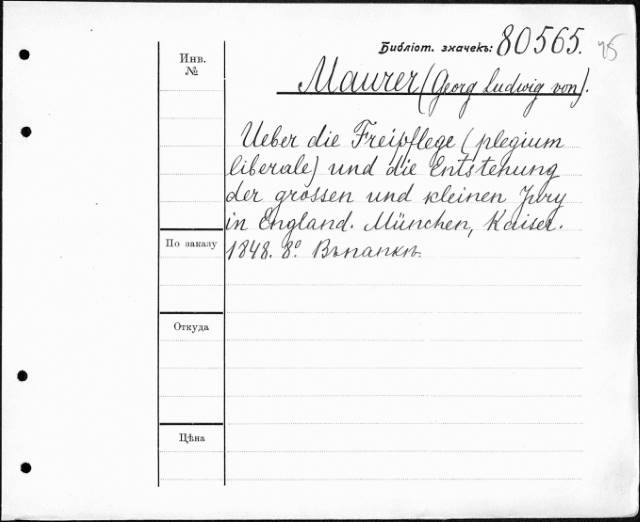 Библіот. значекъ: 80565. 45
Инв.
№
Maurer (Georg Ludwig von).
Ueber die Freipflege (plegium
liberale) und die Entstehung
der grossen und kleinen Jury
in England. München, Kaiser.
По заказу
1848. 8º. Въ папкѣ.
Откуда
Цѣна